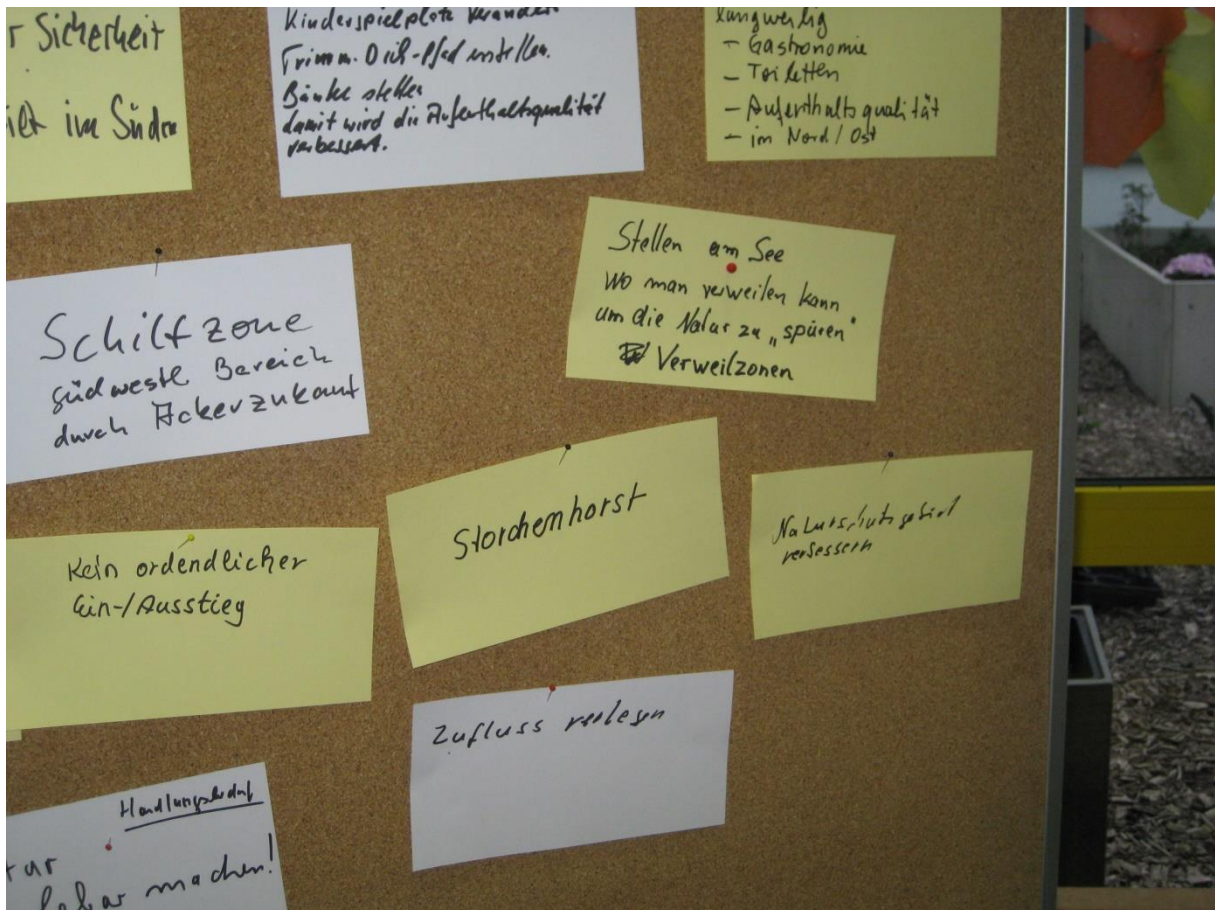 r Sicherheit
im Süden
Kinderspielplatz verändern
Trimm-Dich-Pfad erstellen.
Bänke stellen
damit wird die Aufenthaltsqualität
verbessert.
langweilig
- Gastronomie
- Toiletten
- Aufenthaltsqualität
- im Nord/Ost
Schilfzone
südwestl Bereich
durch Ackerzukauf
Stellen am See
wo man verweilen kann
um die Natur zu „spüren"
Verweilzonen
Kein ordendlicher
Ein-/Ausstieg
Storchenhorst
Naturschutzgebiet
verbessern
Zufluss verlegen
Handlungsbedarf
tur
machen!